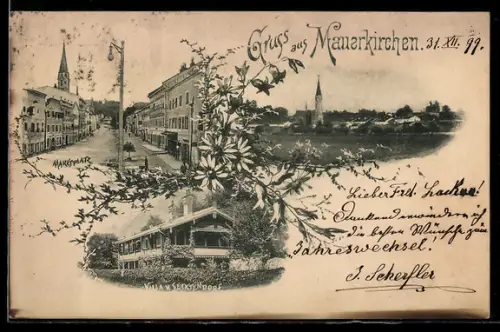 Gruss aus Mauerkirchen. 31. XII. 99.
MARKTPLATZ
Lieber Frd.
Dankend erwidere ich
die besten Wünsche zum
Jahreswechsel!
J. Scherfler
VILLA V. SECKENDORF